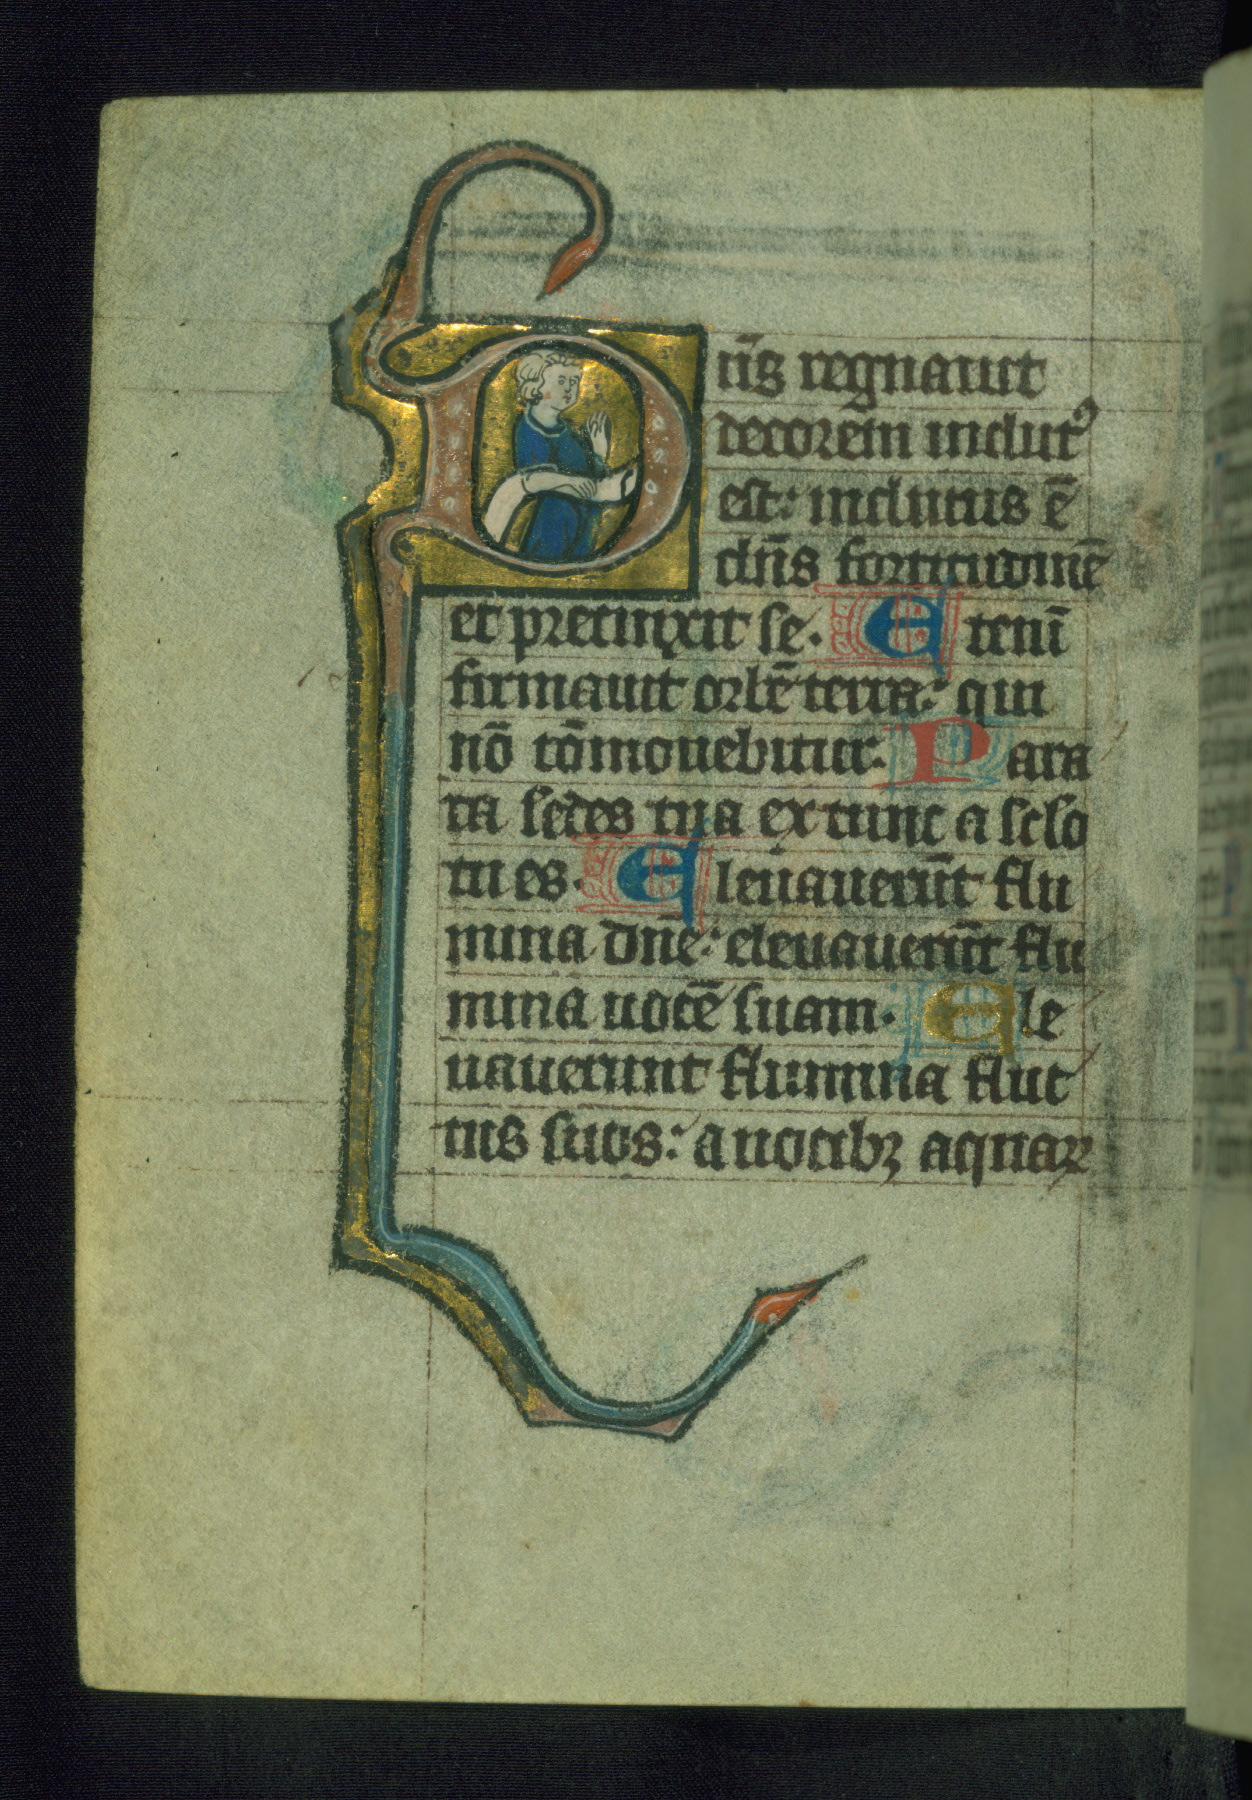 Dn̄s regnauit
decorem indutꝰ
est: indutus ē
dn̄s fortitudinē
et precinxit se. Etenī
firmauit orbē terre: qui
nō cōmouebitur. Para
ta sedes tua ex tunc a seclo
tu es. Eleuauerūt flu
mina dn̄e: eleuauerūt flu
mina uocē suam. Ele
uauerunt flumina fluc
tus suos: a uocibꝫ aquaꝝ